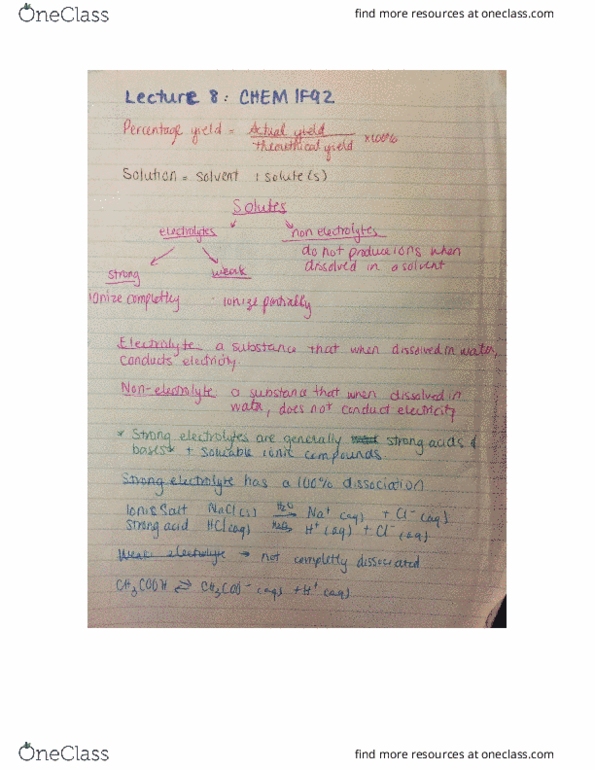 OneClass
find more resources at oneclass.com
Lecture 8: CHEM 1F92
Percentage yield = Actual yield
theorethical yield x100%
Solution = Solvent + Solute(s)
Solutes
electrolytes
non electrolytes
do not produce ions when
dissolved in a solvent
strong
weak
ionize completly
ionize partially
Electrolyte: a substance that when dissolved in water,
conducts electricity.
Non-electrolyte: a substance that when dissolved in
water, does not conduct electricity
* Strong electrolytes are generally strong acids &
bases + soluable ionic compounds.
Strong electrolyte has a 100% dissociation
Ionic Salt NaCl(s) H₂O → Na⁺ (aq) + Cl⁻ (aq)
Strong acid HCl(aq) H₂O → H⁺ (aq) + Cl⁻ (aq)
Weak electrolyte → not completly dissociated
CH₃COOH ⇌ CH₃COO⁻ (aq) + H⁺ (aq)
OneClass
find more resources at oneclass.com